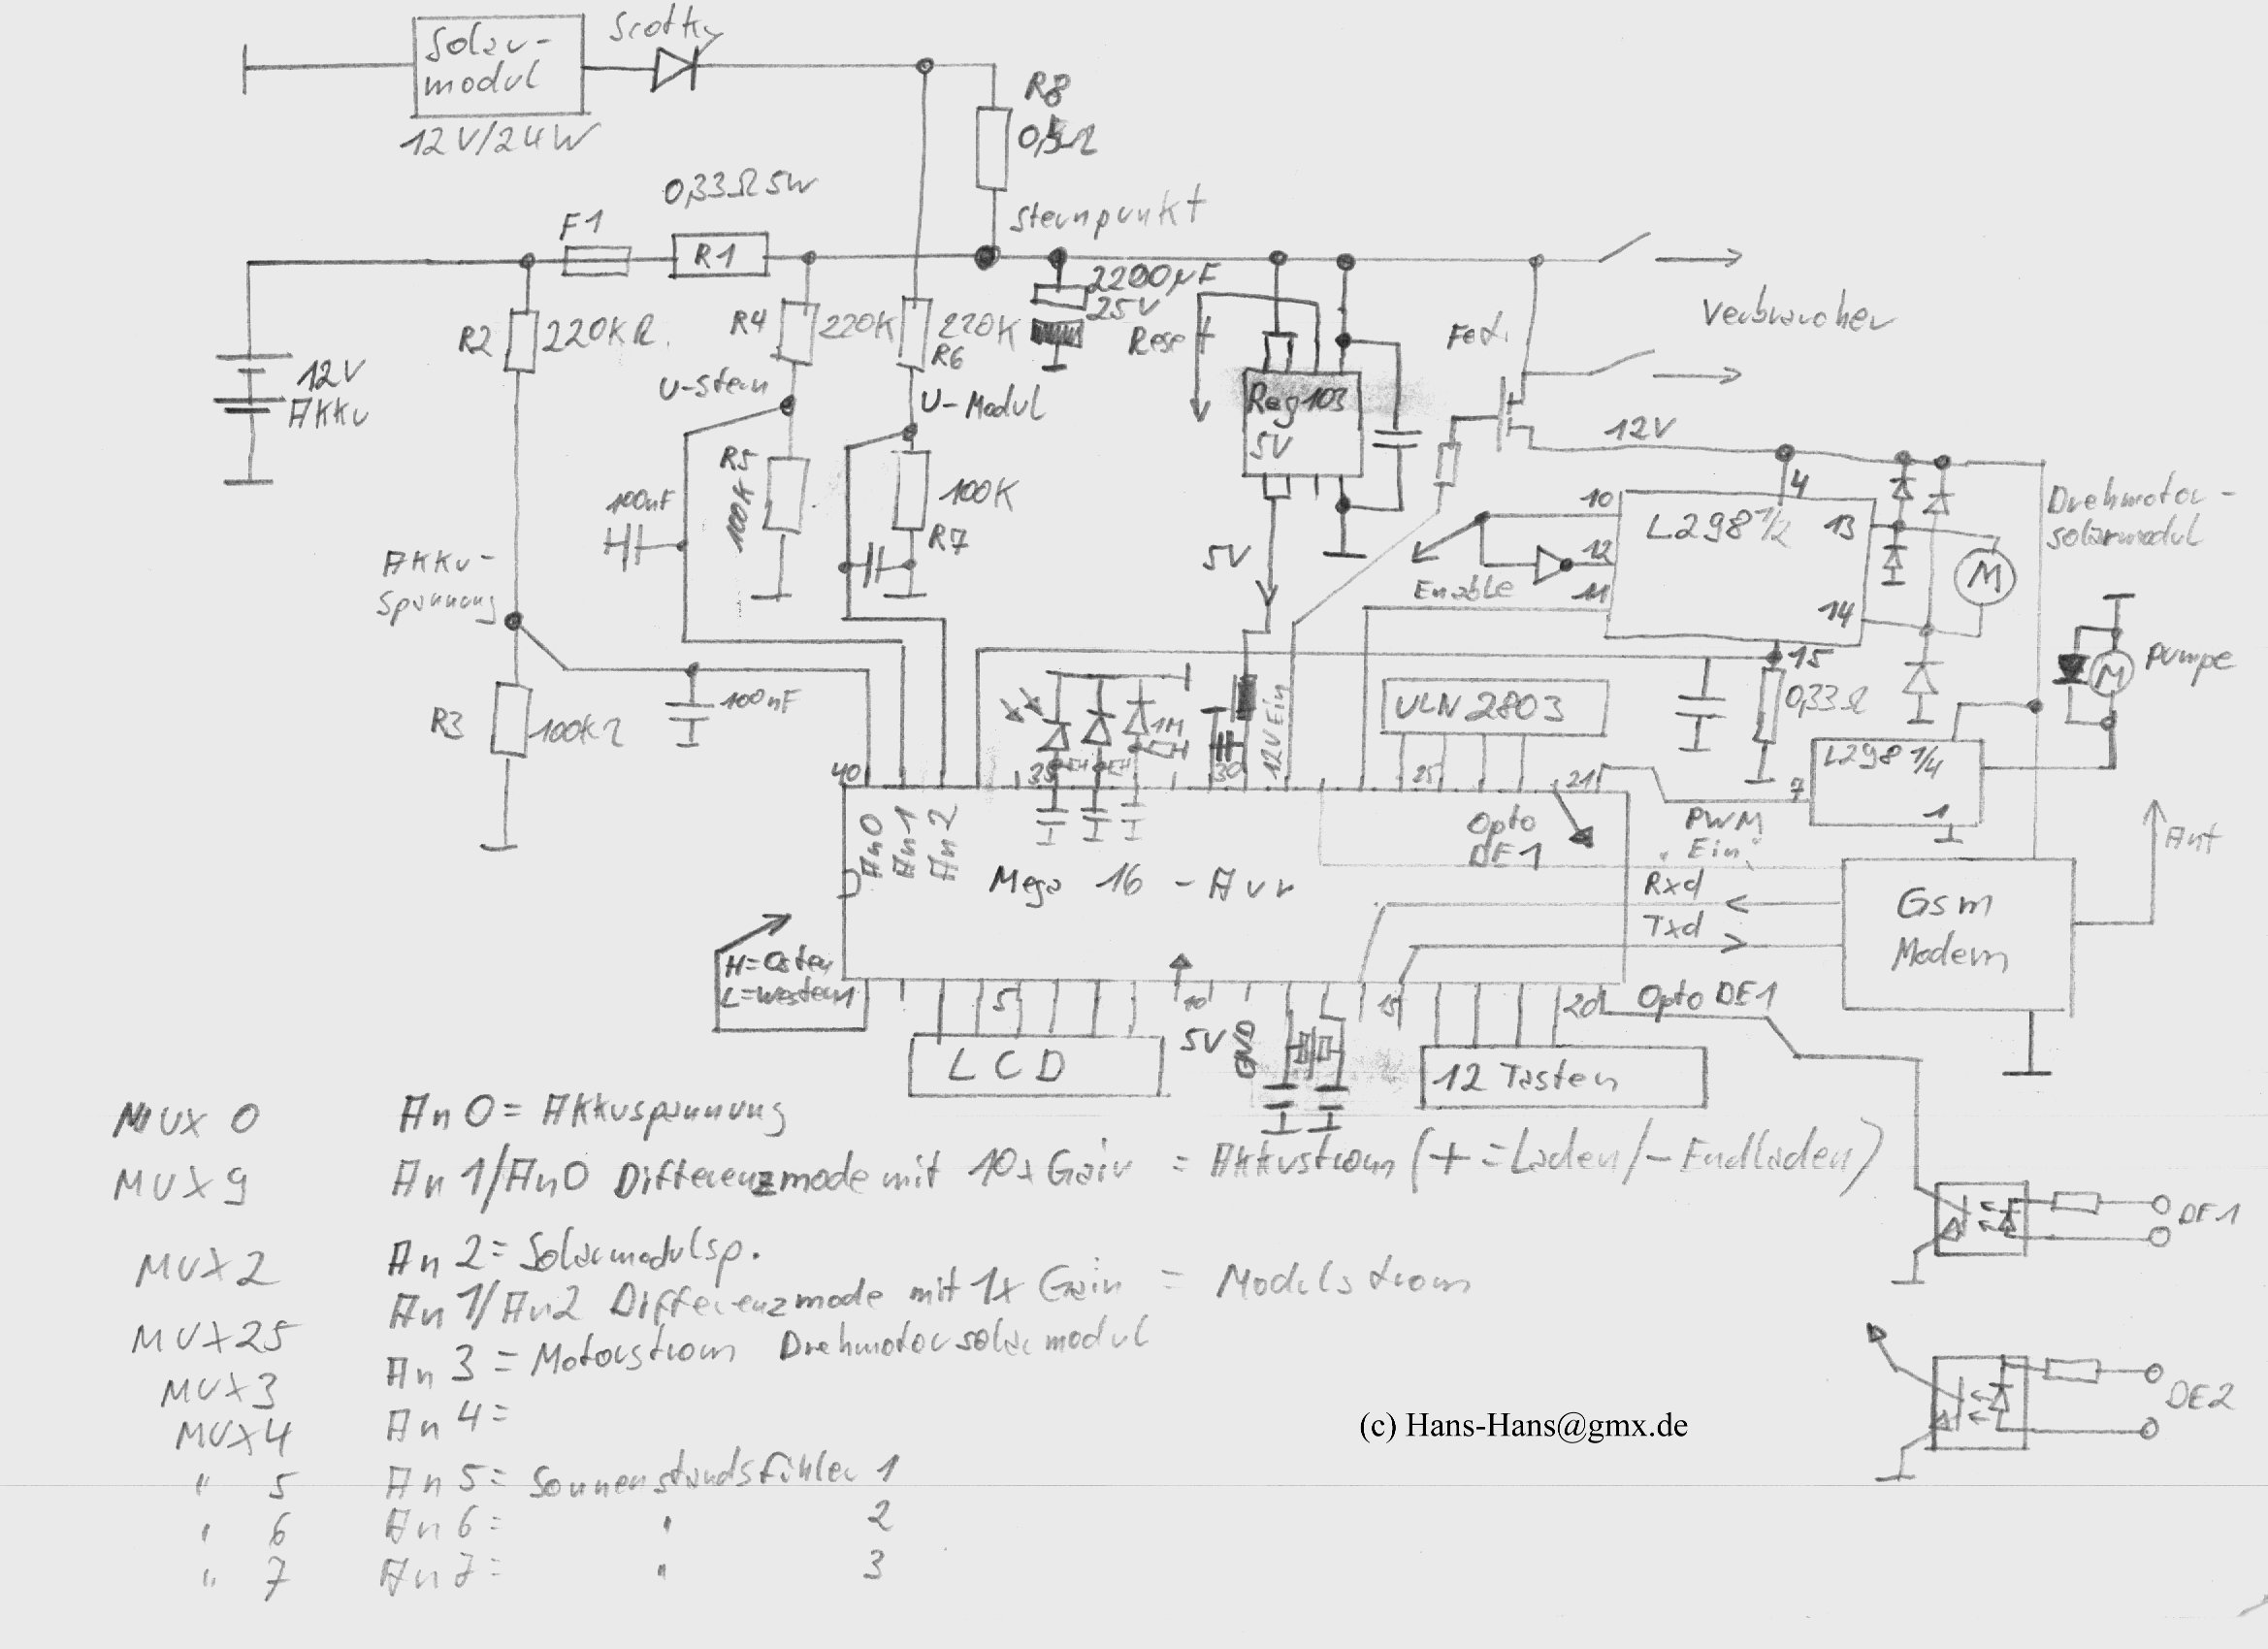 Solar-
modul
Scotky
12V/24W
R8
0,33Ω 5W
Sternpunkt
F1
R1
2200µF
25V
R2
220KΩ
R4
220K
220K
R6
Reset
Fet
Verbraucher
12V
Akku
U-Stern
U-Modul
Reg 103
5V
12V
R5
100K
100nF
100K
R7
10
4
L298 1/2
13
12
11
14
Enable
5V
Drehmotor-
solarmodul
M
Akku-
Spannung
15
0,33Ω
M
Pumpe
R3
100KΩ
100nF
1M
12V Ein
ULN 2803
40
35
30
25
21
7
L298 1/4
1
An0
An1
An2
Opto
DE1
PWM
"Ein"
Ant
Mega 16 - Avr
Rxd
Txd
Gsm
Modem
H=Osten
L=Westen
1
5
10
15
20
Opto DE1
5V
GND
LCD
12 Tasten
MUX 0 An 0 = Akkuspannung
MUX 9 An 1/An0 Differenzmode mit 10x Gain = Akkustrom (+ = Laden/- Endladen)
MUX 2 An 2 = Solarmodulsp.
MUX 25 An 1/An2 Differenzmode mit 1x Gain = Modulstrom
MUX 3 An 3 = Motorstrom Drehmotorsolarmodul
MUX 4 An 4 =
" 5 An 5 = Sonnenstandsfühler 1
" 6 An 6 = " 2
" 7 An 7 = " 3
DE1
DE2
(c) Hans-Hans@gmx.de